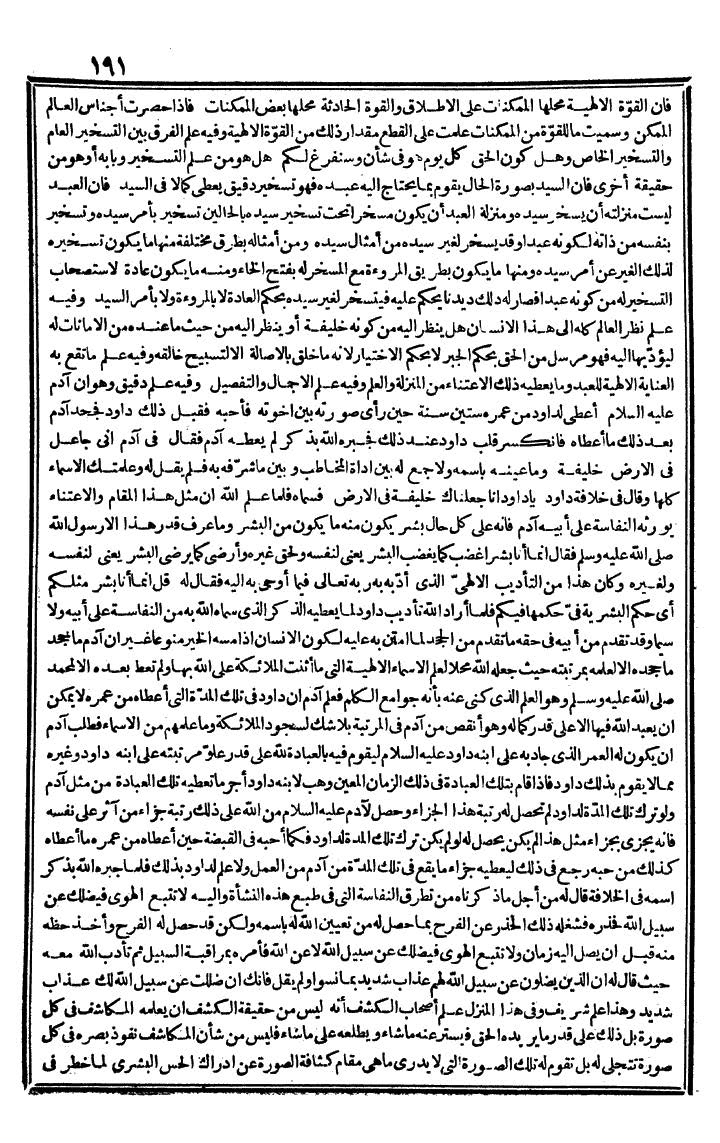 ١٩١
فان القوّة الالهية محلها الممكنات على الاطلاق والقوة الحادثة محلها بعض الممكنات فاذا حصرت أجناس العالم
الممكن وسميت ما للقوة من الممكنات علمت على القطع مقدار ذلك من القوة الالهية وفيه علم الفرق بين التسخير العام
والتسخير الخاص وهل كون الحق كل يوم هو فى شأن وسنفرغ لكم هل هو من علم التسخير وبابه أو هو من
حقيقة أخرى فان السيد بصورة الحال يقوم بما يحتاج اليه عبده فهو تسخير دقيق يعطى كمالا فى السيد فان العبد
ليست منزلته أن يسخر سيده ومنزلة العبد أن يكون مسخرا تحت تسخير سيده بالحالين تسخير بأمر سيده وتسخير
بنفسه من ذاته لكونه عبدا وقد يسخر لغير سيده من أمثال سيده ومن أمثاله بطرق مختلفة منها ما يكون تسخيره
لذلك الغير عن أمر سيده ومنها ما يكون بطريق المروءة مع المسخر له بفتح الخاء ومنه ما يكون عادة لاستصحاب
التسخير له من كونه عبدا فصار له ذلك ديدنا يحكم عليه فيتسخر لغير سيده بحكم العادة لا بالمروءة ولا بأمر السيد وفيه
علم نظر العالم كله الى هذا الانسان هل ينظر اليه من كونه خليفة أو ينظر اليه من حيث ما عنده من الامانات له
ليؤدّيها اليه فهو مرسل من الحق بحكم الجبر لا بحكم الاختيار لانه ما خلق بالاصالة الا لتسبيح خالقه وفيه علم ما تقع به
العناية الالهية للعبد وما يعطيه ذلك الاعتناء من المنزلة والعلم وفيه علم الاجمال والتفصيل وفيه علم دقيق وهو ان آدم
عليه السلام أعطى لداود من عمره ستين سنة حين رأى صورته بين اخوته فأحبه فقبل ذلك داود فجحد آدم
بعد ذلك ما أعطاه فانكسر قلب داود عند ذلك فجبره الله بذكر لم يعطه آدم فقال فى آدم انى جاعل
فى الارض خليفة وما عينه باسمه ولا جمع له بين اداة المخاطب و بين ماشرّفه به فلم يقل له وعلمتك الاسماء
كلها وقال فى خلافة داود يا داود انا جعلناك خليفة فى الارض فسماه فلما علم الله ان مثل هذا المقام والاعتناء
يورثه النفاسة على أبيه آدم فانه على كل حال بشر يكون منه ما يكون من البشر وما عرف قدر هذا الا رسول الله
صلى الله عليه وسلم فقال انما أنا بشر اغضب كما يغضب البشر يعنى لنفسه ولحق غيره وأرضى كما يرضى البشر يعنى لنفسه
ولغيره وكان هذا من التأديب الالهىّ الذى أدّبه به ربه تعالى فيما أوحى به اليه فقال له قل انما أنا بشر مثلكم
أى حكم البشرية فىّ حكمها فيكم فلما أراد الله تأديب داود لما يعطيه الذكر الذى سماه الله به من النفاسة على أبيه ولا
سيما وقد تقدم من أبيه فى حقه ما تقدم من الجحد لما امتن به عليه لكون الانسان اذا مسه الخير منوعا غير ان آدم ما جحد
ما جحده الا لعلمه بمرتبته حيث جعله الله محلا لعلم الاسماء الالهية التى ما أثنت الملائكة على الله بها ولم تعط بعده الا لمحمد
صلى الله عليه وسلم وهو العلم الذى كنى عنه بأنه جوامع الكلم فعلم آدم ان داود فى تلك المدّة التى أعطاه من عمره لا يمكن
ان يعبد الله فيها الا على قدر كماله وهو أنقص من آدم فى المرتبة بلا شك لسجود الملائكة وما علمهم من الاسماء فطلب آدم
ان يكون له العمر الذى جاد به على ابنه داود عليه السلام ليقوم فيه بالعبادة لله على قدر علوّ مرتبته على ابنه داود وغيره
مما لا يقوم بذلك داود فاذا قام بتلك العبادة فى ذلك الزمان المعين وهب لابنه داود أجر ما تعطيه تلك العبادة من مثل آدم
ولو ترك تلك المدّة لداود لم تحصل له رتبة هذا الجزاء وحصل لآدم عليه السلام من الله على ذلك رتبة جزاء من آثر على نفسه
فانه يجزى بجزاء مثل هذا لم يكن يحصل له لو لم يكن ترك تلك المدة لداود فكما أحبه فى القبضة حين أعطاه من عمره ما أعطاه
كذلك من حبه رجع فى ذلك ليعطيه جزاء ما يقع فى تلك المدّة من آدم من العمل ولا علم لداود بذلك فلما جبره الله بذكر
اسمه فى الخلافة قال له من أجل ما ذكرناه من تطرق النفاسة التى فى طبع هذه النشأة واليه لا تتبع الهوى فيضلك عن
سبيل الله فحذره فشغله ذلك الحذر عن الفرح بما حصل له من تعيين الله له باسمه ولكن قد حصل له الفرح وأخذ حظه
منه قبل ان يصل اليه زمان ولا تتبع الهوى فيضلك عن سبيل الله لا عن الله فأمره بمراقبة السبيل ثم تأدب الله معه
حيث قال له ان الذين يضلون عن سبيل الله لهم عذاب شديد بما نسوا ولم يقل فانك ان ضللت عن سبيل الله لك عذاب
شديد وهذا علم شريف وفى هذا المنزل علم أصحاب الكشف أنه ليس من حقيقة الكشف ان يعلمه المكاشف فى كل
صورة بل ذلك على قدر ما يريده الحق فيستر عنه ما شاء و يطلعه على ما شاء فليس من شأن المكاشف نفوذ بصره فى كل
صورة تتجلى له بل تقوم له تلك الصورة التى لا يدرى ما هى مقام كثافة الصورة عن ادراك الحس البشرى لما خطر فى